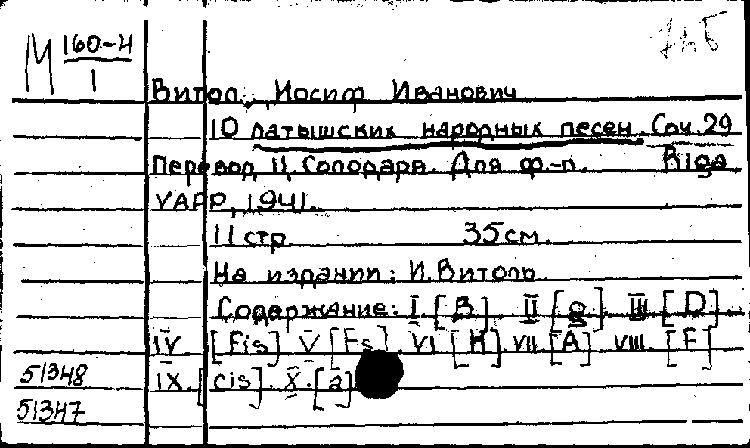 М 160-Н
I
Витол, Иосиф Иванович
10 латышских народных песен. Соч. 29
Перевод Ц. Солодарь. Для ф.-п. Riga
VAPP, 1941.
11 стр 35 см.
На издании: И. Витоль
Содержание: I. [B]. II [g]. III [D].
IV [Fis] V [Es]. VI [H]. VII. [A] VIII. [F]
51348 IX. [cis]. X. [a]
51347